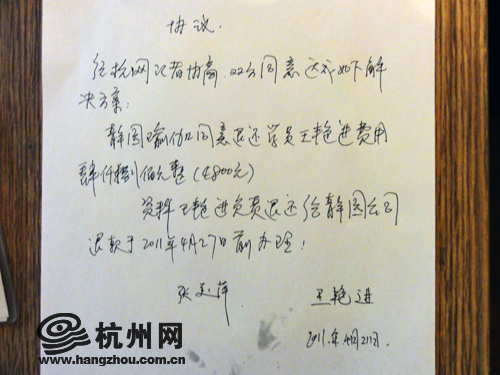 协议.
经杭网记者协商.双方同意达成如下解
决方案:
静园瑜伽同意退还学员王艳进费用
肆仟捌佰元整(4800元)
资料王艳进负责退还给静园公司
退款于2011年4月27日前办理!
张 萍 王艳进
2011.年4月21日.
杭州网
www.hangzhou.com.cn